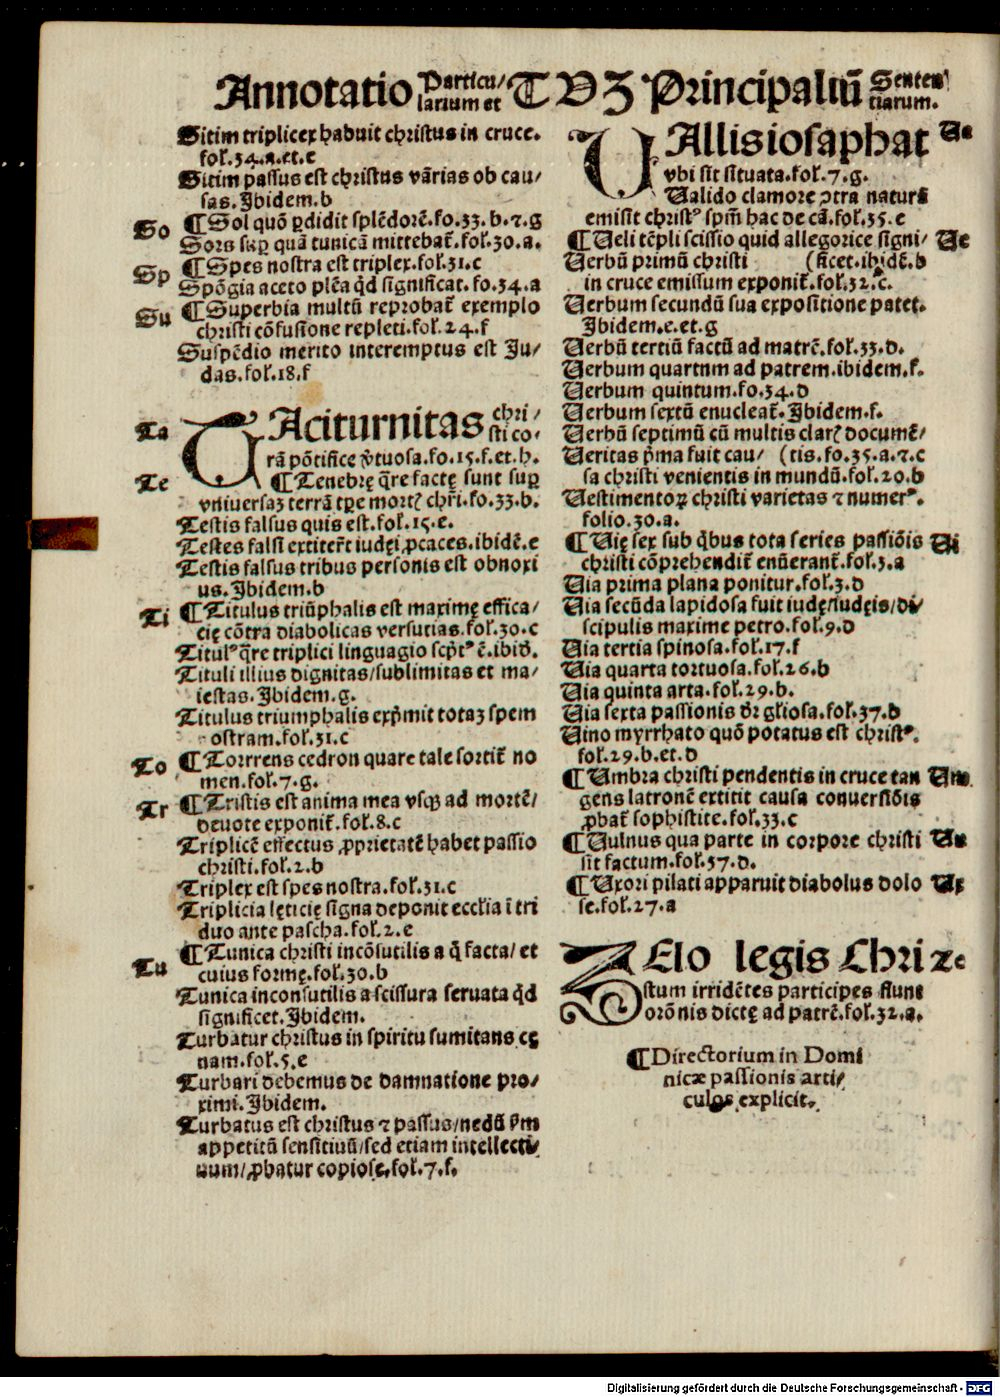 Annotatio Particu/larium et T V Z Principaliū Sententiarum.
Sitim triplicē habuit christus in cruce.
fol.34.a.et.c
Sitim passus est christus vārias ob cau/
sas. Ibidem.b
So ¶Sol quō ꝑdidit splēdorē.fo.33.b.⁊.g
Sors suꝑ quā tunicā mittebat̄.fol.30.a.
Sp ¶Spes nostra est triplex.fol.31.c
Spōgia aceto plēa qd̄ significat.fo.34.a
Su ¶Superbia multū reprobat̄ exemplo
christi cōfusione repleti.fol.24.f
Suspēdio merito interemptus est Iu/
das.fol.18.f
Ta TAciturnitas chri/
sti co/
rā pōtifice v̄tuosa.fo.15.f.et.h.
Te ¶Tenebrę q̄re factę sunt suꝑ
vniuersaꝫ terrā tꝑe mortꝭ chr̄i.fo.33.b.
Testis falsus quis est.fol.15.e.
Testes falsi extiter̄t iudęi ꝓcaces.ibidē.e
Testis falsus tribus personis est obnoxi
us. Ibidem.b
Ti ¶Titulus triūphalis est maximę effica/
cię cōtra diabolicas versutias.fol.30.c
Titulꝰ q̄re triplici linguagio scp̄tꝰ ē.ibid̄.
Tituli illius dignitas/sublimitas et ma/
iestas. Ibidem.g.
Titulus triumphalis exp̄mit totaꝫ spem
nostram.fol.31.c
To ¶Torrens cedron quare tale sortit̄ no
men.fol.7.g.
Tr ¶Tristis est anima mea vsqꝫ ad mortē/
deuote exponit̄.fol.8.c
Triplicē effectus ꝓprietatē habet passio
christi.fol.2.b
Triplex est spes nostra.fol.31.c
Triplicia lęticię signa deponit eccłia ī tri
duo ante pascha.fol.2.e
Tu ¶Tunica christi incōsutilis a q̄ facta/ et
cuius formę.fol.30.b
Tunica inconsutilis a scissura seruata qd̄
significet. Ibidem.
Turbatur christus in spiritu sumitans cę
nam.fol.5.e
Turbari debemus de damnatione pro/
ximi. Ibidem.
Turbatus est christus ⁊ passus/nedū ẜm
appetitū sensitiuū/sed etiam intellecti/
uum/ꝓbatur copiose.fol.7.f.
VAllis iosaphat Va
vbi sit situata.fol.7.g.
Valido clamore ↄtra naturā
emisit christꝰ spm̄ hac de cā.fol.35.e
¶Veli tēpli scissio quid allegorice signi/ Ve
Verbū primū christi (ficet.ibidē.b
in cruce emissum exponit̄.fol.32.c.
Verbum secundū sua expositione patet.
Ibidem.e.et.g
Verbū tertiū factū ad matrē.fol.33.d.
Verbum quartum ad patrem.ibidem.f.
Verbum quintum.fo.34.d
Verbum sextū enucleat̄. Ibidem.f.
Verbū septimū cū multis clarꝭ documē/
Veritas p̄ma fuit cau/ (tis.fo.35.a.⁊.c
sa christi venientis in mundū.fol.20.b
Vestimentoꝝ christi varietas ⁊ numerꝰ.
folio.30.a.
¶Vię sex sub q̄bus tota series passiōis Vi
christi cōprehendit̄ enūerant̄.fol.3.a
Via prima plana ponitur.fol.3.d
Via secūda lapidosa fuit iudę/iudęis/di/
scipulis maxime petro.fol.9.d
Via tertia spinosa.fol.17.f
Via quarta tortuosa.fol.26.b
Via quinta arta.fol.29.b.
Via sexta passionis dr̄ głiosa.fol.37.b
Vino myrrhato quō potatus est christꝰ.
fol.29.b.et.d
¶Vmbra christi pendentis in cruce tan Vm
gens latronē extitit causa conuersiōis
ꝓbat̄ sophistite.fol.33.c
¶Vulnus qua parte in corpore christi Vu
sit factum.fol.37.d.
¶Vxori pilati apparuit diabolus dolo Vx
se.fol.27.a
ZElo legis Chri Ze
stum irridētes participes fiunt
orōnis dictę ad patrē.fol.32.a.
¶Directorium in Domi
nicæ passionis arti/
culos explicit.
Digitalisierung gefördert durch die Deutsche Forschungsgemeinschaft - DFG